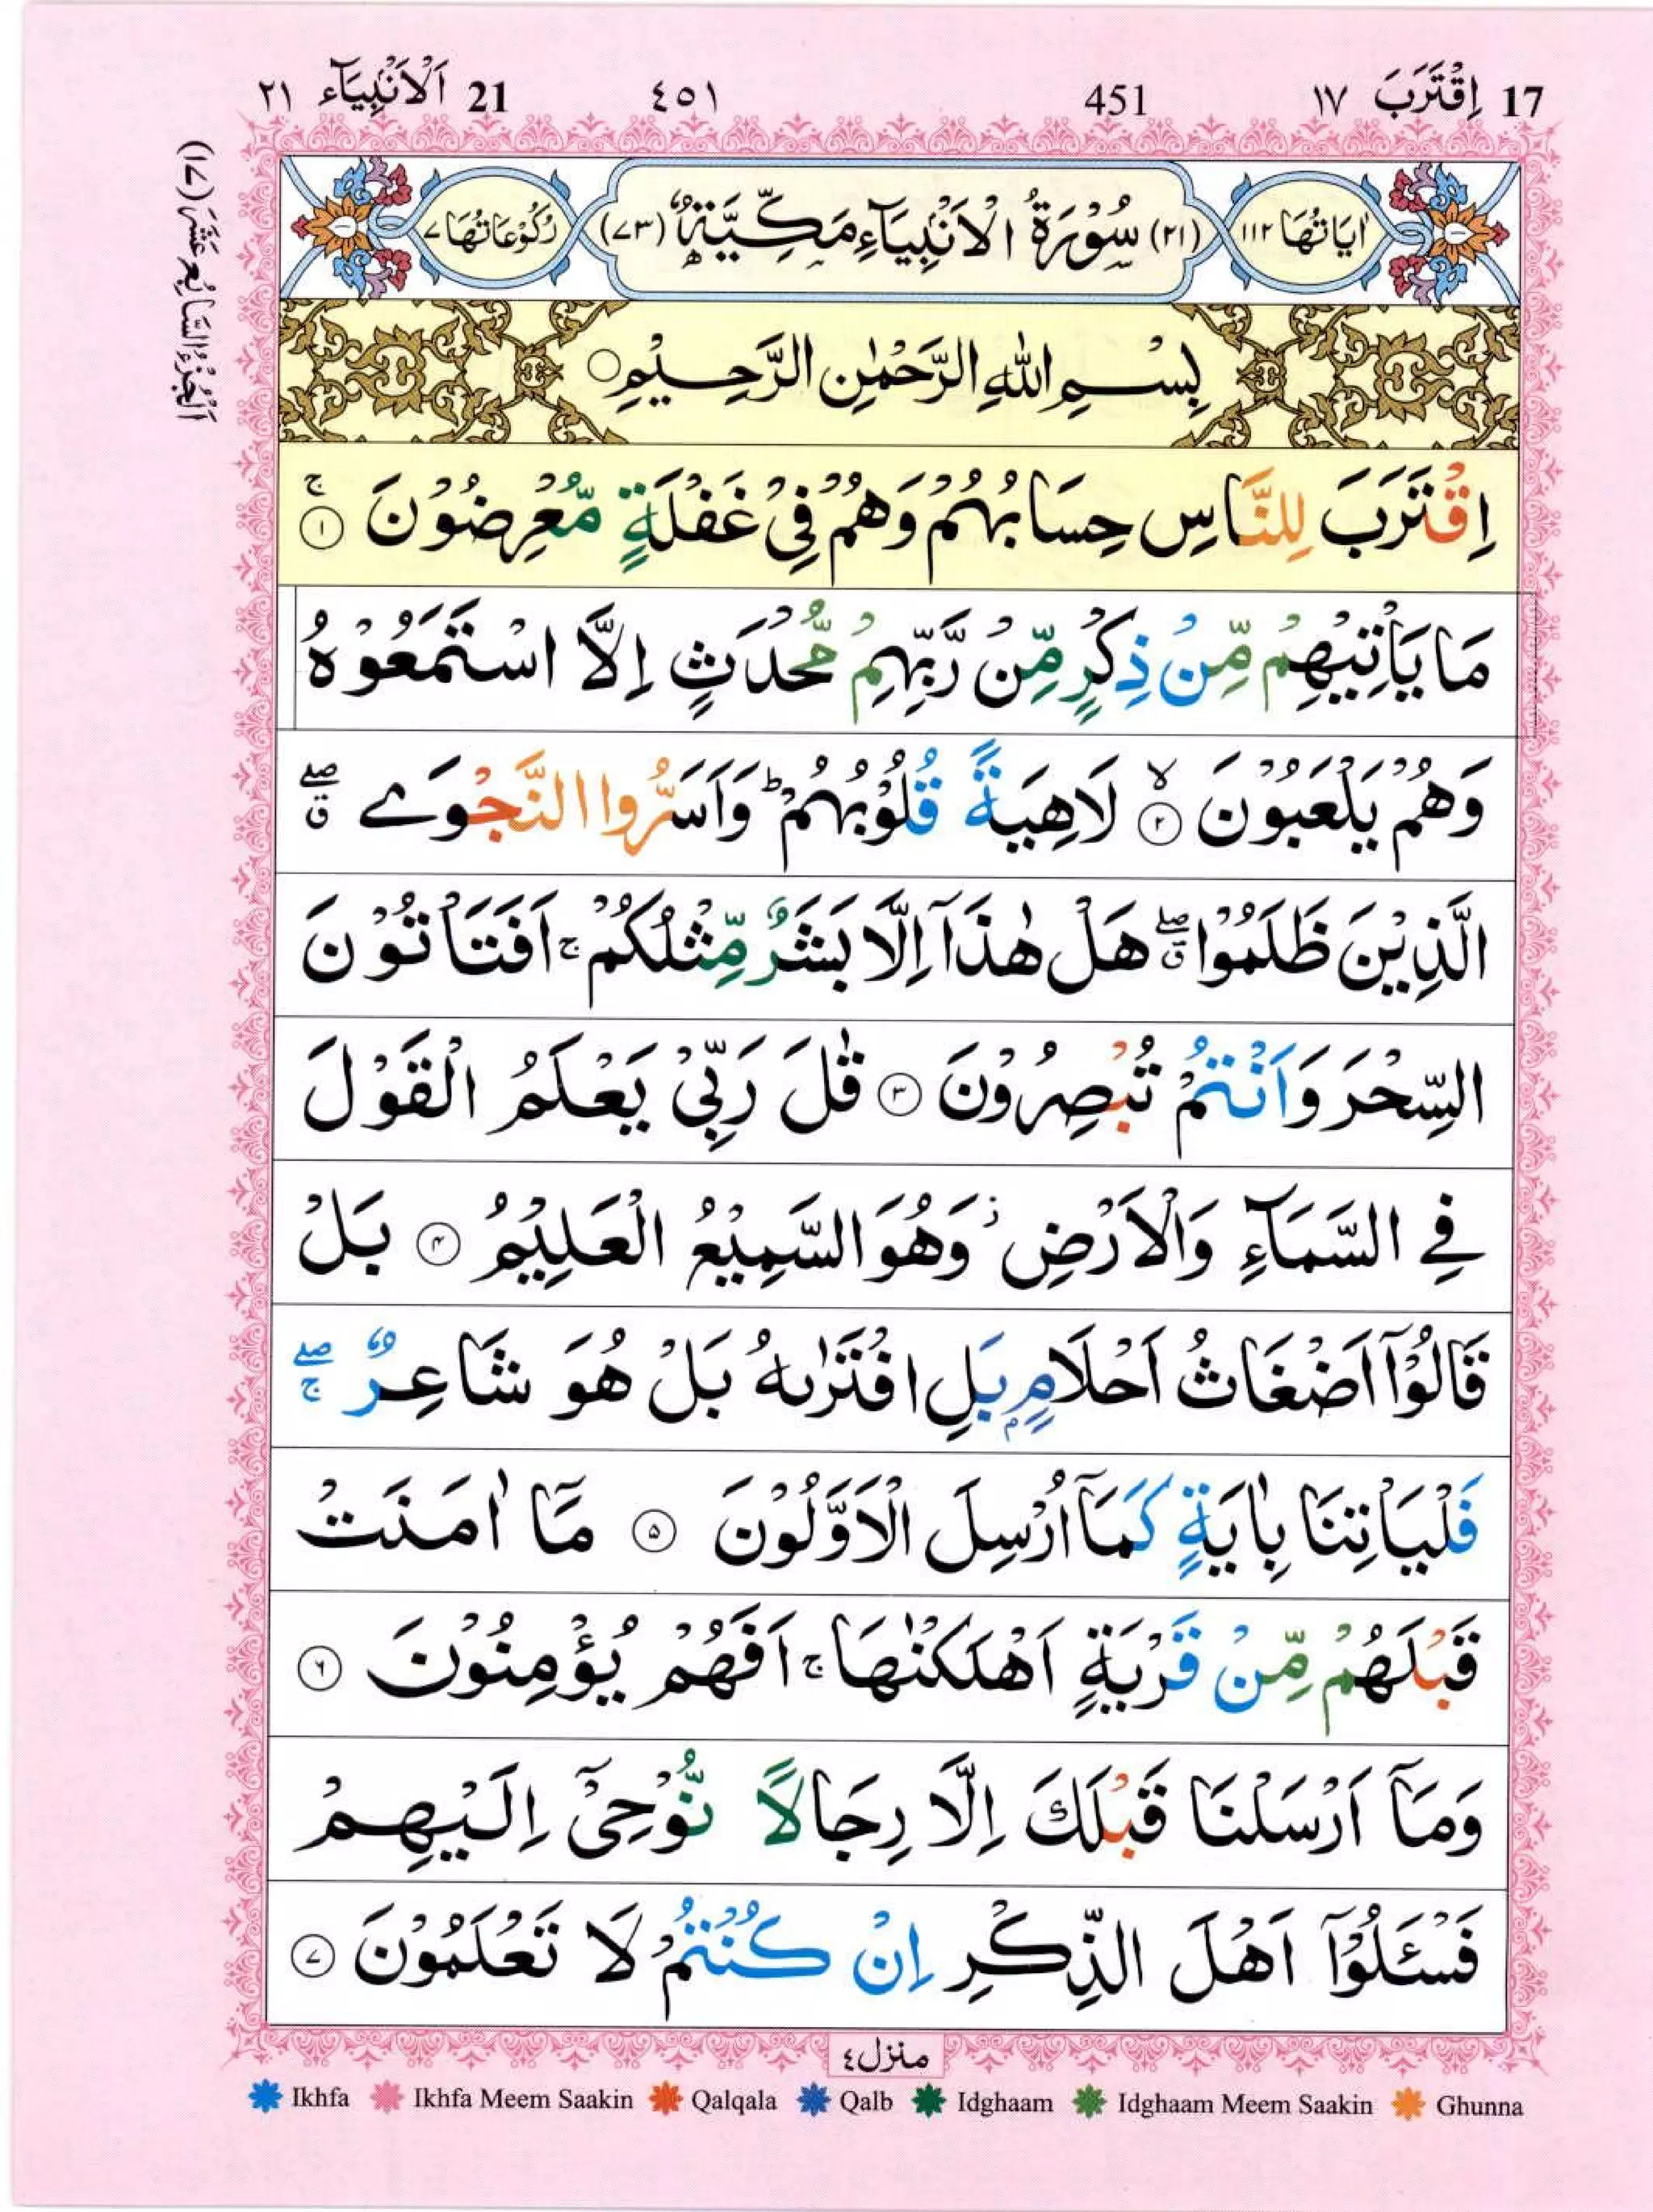 17 اِقْتَرَبَ ١٧ 451 ٤٥١ 21 اَلْاَنْۢبِيَآء ٢١
اَلْجُزْءُ السَّابِعُ عَشَرَ (١٧)
اٰيَاتُهَا ١١٢ (٢١) سُوْرَةُ الْاَنْۢبِيَآءِ مَكِّيَّةٌ (٧٣) رُكُوْعَاتُهَا ٧
بِسْمِ اللّٰهِ الرَّحْمٰنِ الرَّحِيْمِ ○
اِقْتَرَبَ لِلنَّاسِ حِسَابُهُمْ وَهُمْ فِيْ غَفْلَةٍ مُّعْرِضُوْنَ ۚ ١
مَا يَاْتِيْهِمْ مِّنْ ذِكْرٍ مِّنْ رَّبِّهِمْ مُّحْدَثٍ اِلَّا اسْتَمَعُوْهُ
وَهُمْ يَلْعَبُوْنَ ۙ ٢ لَاهِيَةً قُلُوْبُهُمْ ؕ وَاَسَرُّوا النَّجْوَے ۖق
الَّذِيْنَ ظَلَمُوْا ۖق هَلْ هٰذَآ اِلَّا بَشَرٌ مِّثْلُكُمْ ۚ اَفَتَاْتُوْنَ
السِّحْرَ وَاَنْتُمْ تُبْصِرُوْنَ ٣ قٰلَ رَبِّيْ يَعْلَمُ الْقَوْلَ
فِے السَّمَآءِ وَالْاَرْضِ ز وَهُوَ السَّمِيْعُ الْعَلِيْمُ ٤ بَلْ
قَالُوْٓا اَضْغَاثُ اَحْلَامٍۭ بَلِ افْتَرٰىهُ بَلْ هُوَ شَاعِرٌ ۖۚ
فَلْيَاْتِنَا بِاٰيَةٍ كَمَآ اُرْسِلَ الْاَوَّلُوْنَ ٥ مَآ اٰمَنَتْ
قَبْلَهُمْ مِّنْ قَرْيَةٍ اَهْلَكْنٰهَا ۚ اَفَهُمْ يُؤْمِنُوْنَ ٦
وَمَآ اَرْسَلْنَا قَبْلَكَ اِلَّا رِجَالًا نُّوْحِيْٓ اِلَيْهِمْ
فَسْـَٔلُوْٓا اَهْلَ الذِّكْرِ اِنْ كُنْتُمْ لَا تَعْلَمُوْنَ ٧
منزل٤
Ikhfa Ikhfa Meem Saakin Qalqala Qalb Idghaam Idghaam Meem Saakin Ghunna